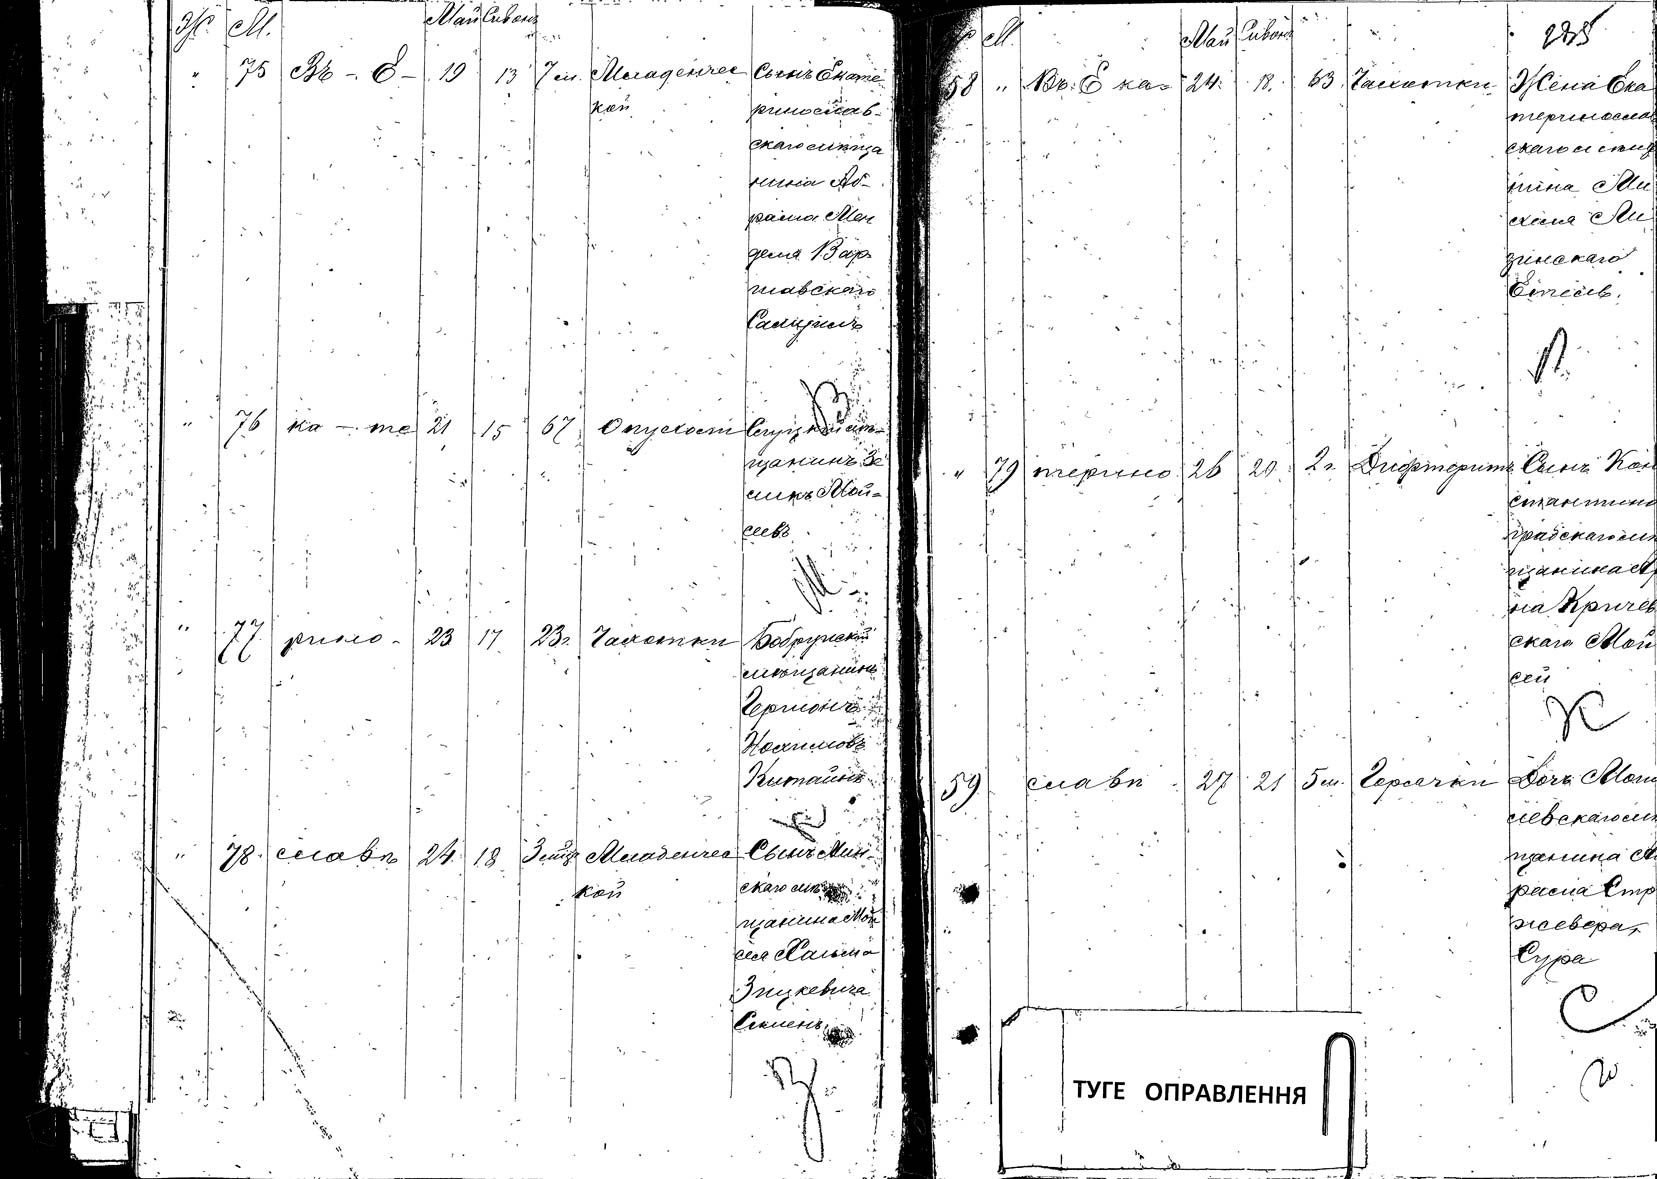 Ж. М. Май Сивонъ
" 75 Въ - Е - 19 13 7 м. Младенчес Сынъ Екате
кой ринослав-
скаго мѣща
нина Аб-
рама Мен
деля Вар
шавскаго
В
" 76 ка - те 21 15 67 Опухоли Слуцкій мѣ-
щанинъ Зе
ликъ Мои-
сеевъ
М
" 77 рино - 23 17 23г. Чахотки Бобруйскій
мѣщанинъ
Гершонъ
Нохимовъ
Китайчикъ
К
" 78. славѣ 24 18 Младенчес Сынъ Мин-
кой скаго мѣ
щанина Мов
ши Хаима
Зицкевича
З
Ж М. Май Сивонъ 285
58 " Въ Е ка- 24. 18. 63. Чахотки Жена Ека
теринослав
скаго мѣщ
нина Ми
хеля Ли
зинскаго
Л.
" 79 терино 26 20. 2г. Дифтеритъ Сынъ Кон
стантино
градскаго мѣ
щанина А
на Кричев
скаго Мой
сей
К
59 славѣ 27 21 5 м. Горячки Дочь Моги
левскаго мѣ
щанина А
рама Стр
жевера,
Сура
С
ТУГЕ ОПРАВЛЕННЯ